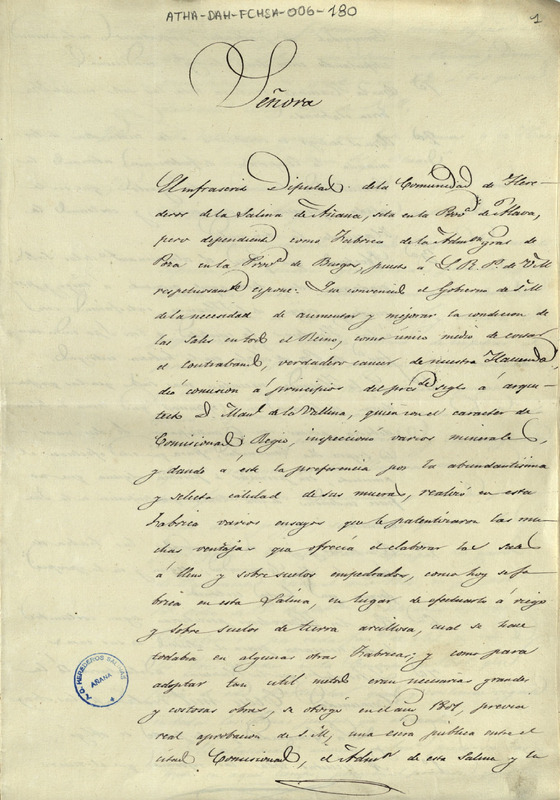 ATHA-DAH-FCHSA-006-180
1
Señora
El infrascrito Diputado de la Comunidad de Here-
deros de la Salina de Añana, sita en la Prov.ª de Alava,
pero dependiente como Fabrica de la Adm.on gral de
Poza en la Prov.ª de Burgos, puesto á L. R. P. de V. M
respetuosam.te espone: Que convencido el Gobierno de S. M
de la necesidad de aumentar y mejorar la condicion de
las Sales en todo el Reino, como unico medio de cortar
el contrabando, verdadero cancer de nuestra Hacienda,
dió comision á principios del pres.te siglo á arqui-
tecto D. Man.l de la Vallina, quien con el caracter de
Comisionado Regio, inspeccionó varios minerales,
y dando á este la preferencia por la abundantisima
y selecta calidad de sus mueras, realizó en esta
Fabrica varios ensayos que le patentizaron las mu-
chas ventajas que ofrecía el elaborar las sales
á lleno y sobre suelos empedrados, como hoy se fa-
brica en esta Salina, en lugar de efectuarlo á riego
y sobre suelos de tierra arcillosa, cual se hace
todabia en algunas otras Fabricas; y como para
adoptar tan util metodo eran necesarias grandes
y costosas obras, se otorgó en el año 1801, previa
real aprobacion de S. M, una escra publica entre el
citado Comisionado, el Adm.or de esta Salina y la
G. HEREDEROS SALINAS
AÑANA